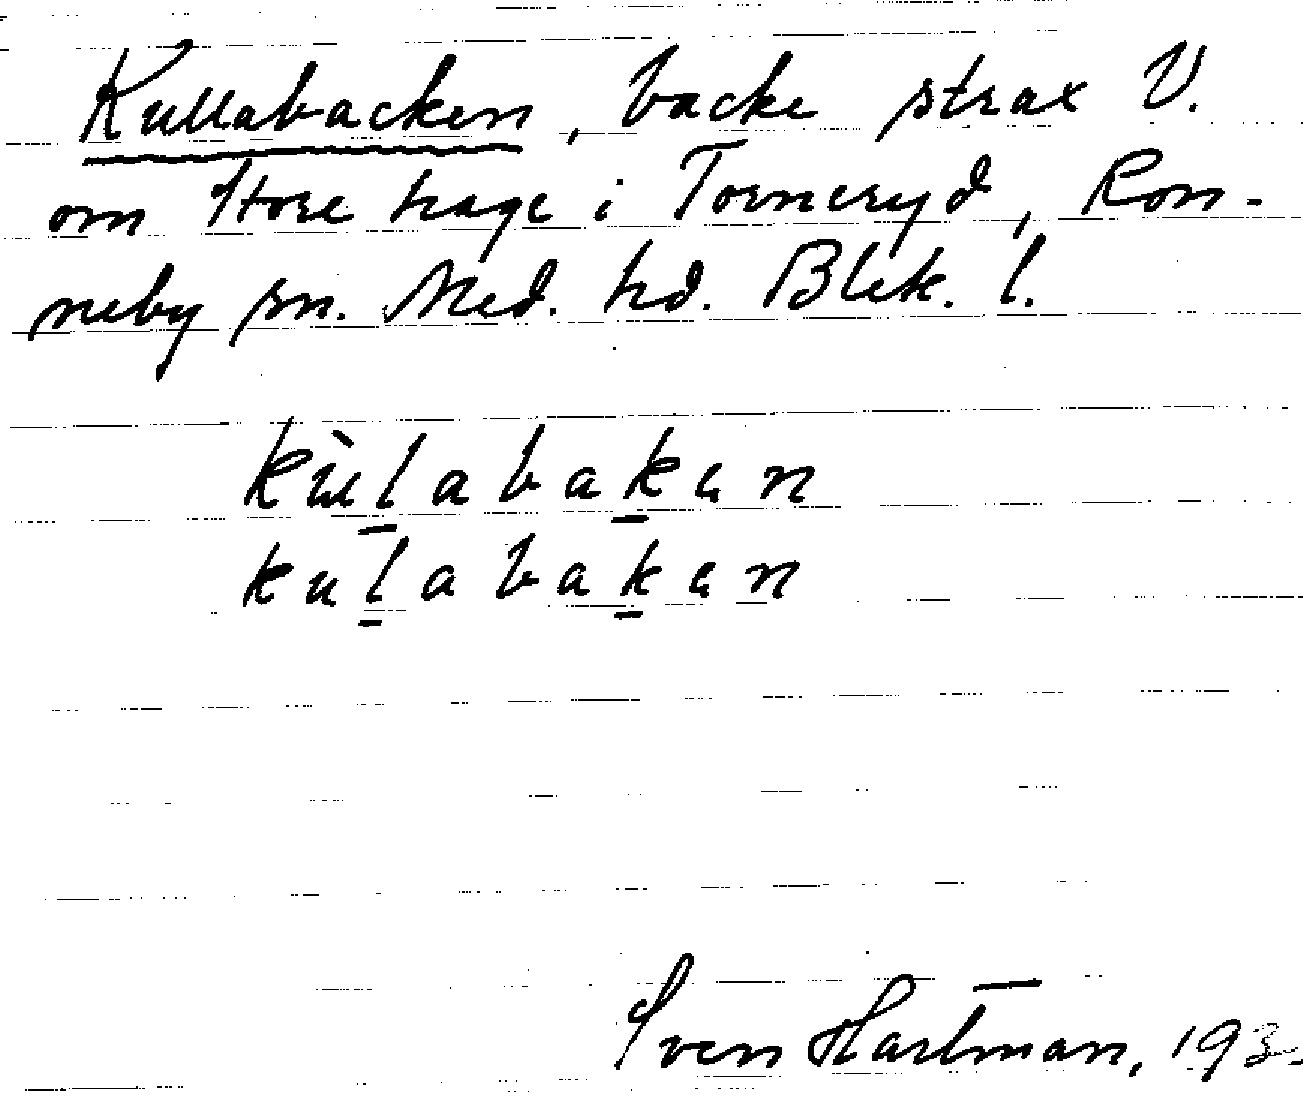 Kullabacken, backe strax V.
om Store hage i Torneryd, Ron-
neby sn. Med. hd. Blek. l.
kùlabakən
kulabakən
Sven Hartman, 193